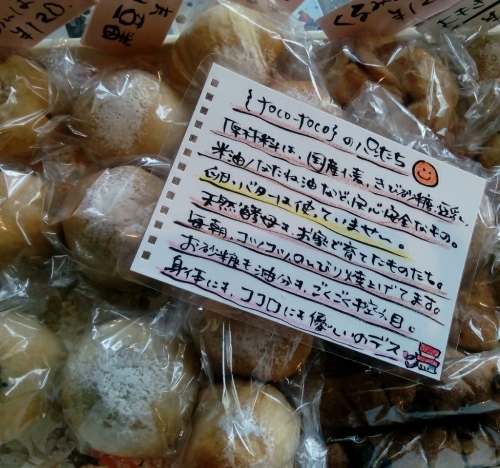 ¥120.
{toco-toco}のパンたち
原材料は、国産小麦、きび砂糖、豆乳、
米油/なたね油など、安心安全なもの。
卵・バターは使っていません。
天然酵母も、お家で育てたものたち。
毎朝、コツコツ、のんびり焼き上げてます。
お砂糖も油分も、ごくごく控え目。
身体にも、ココロにも優しいのデス